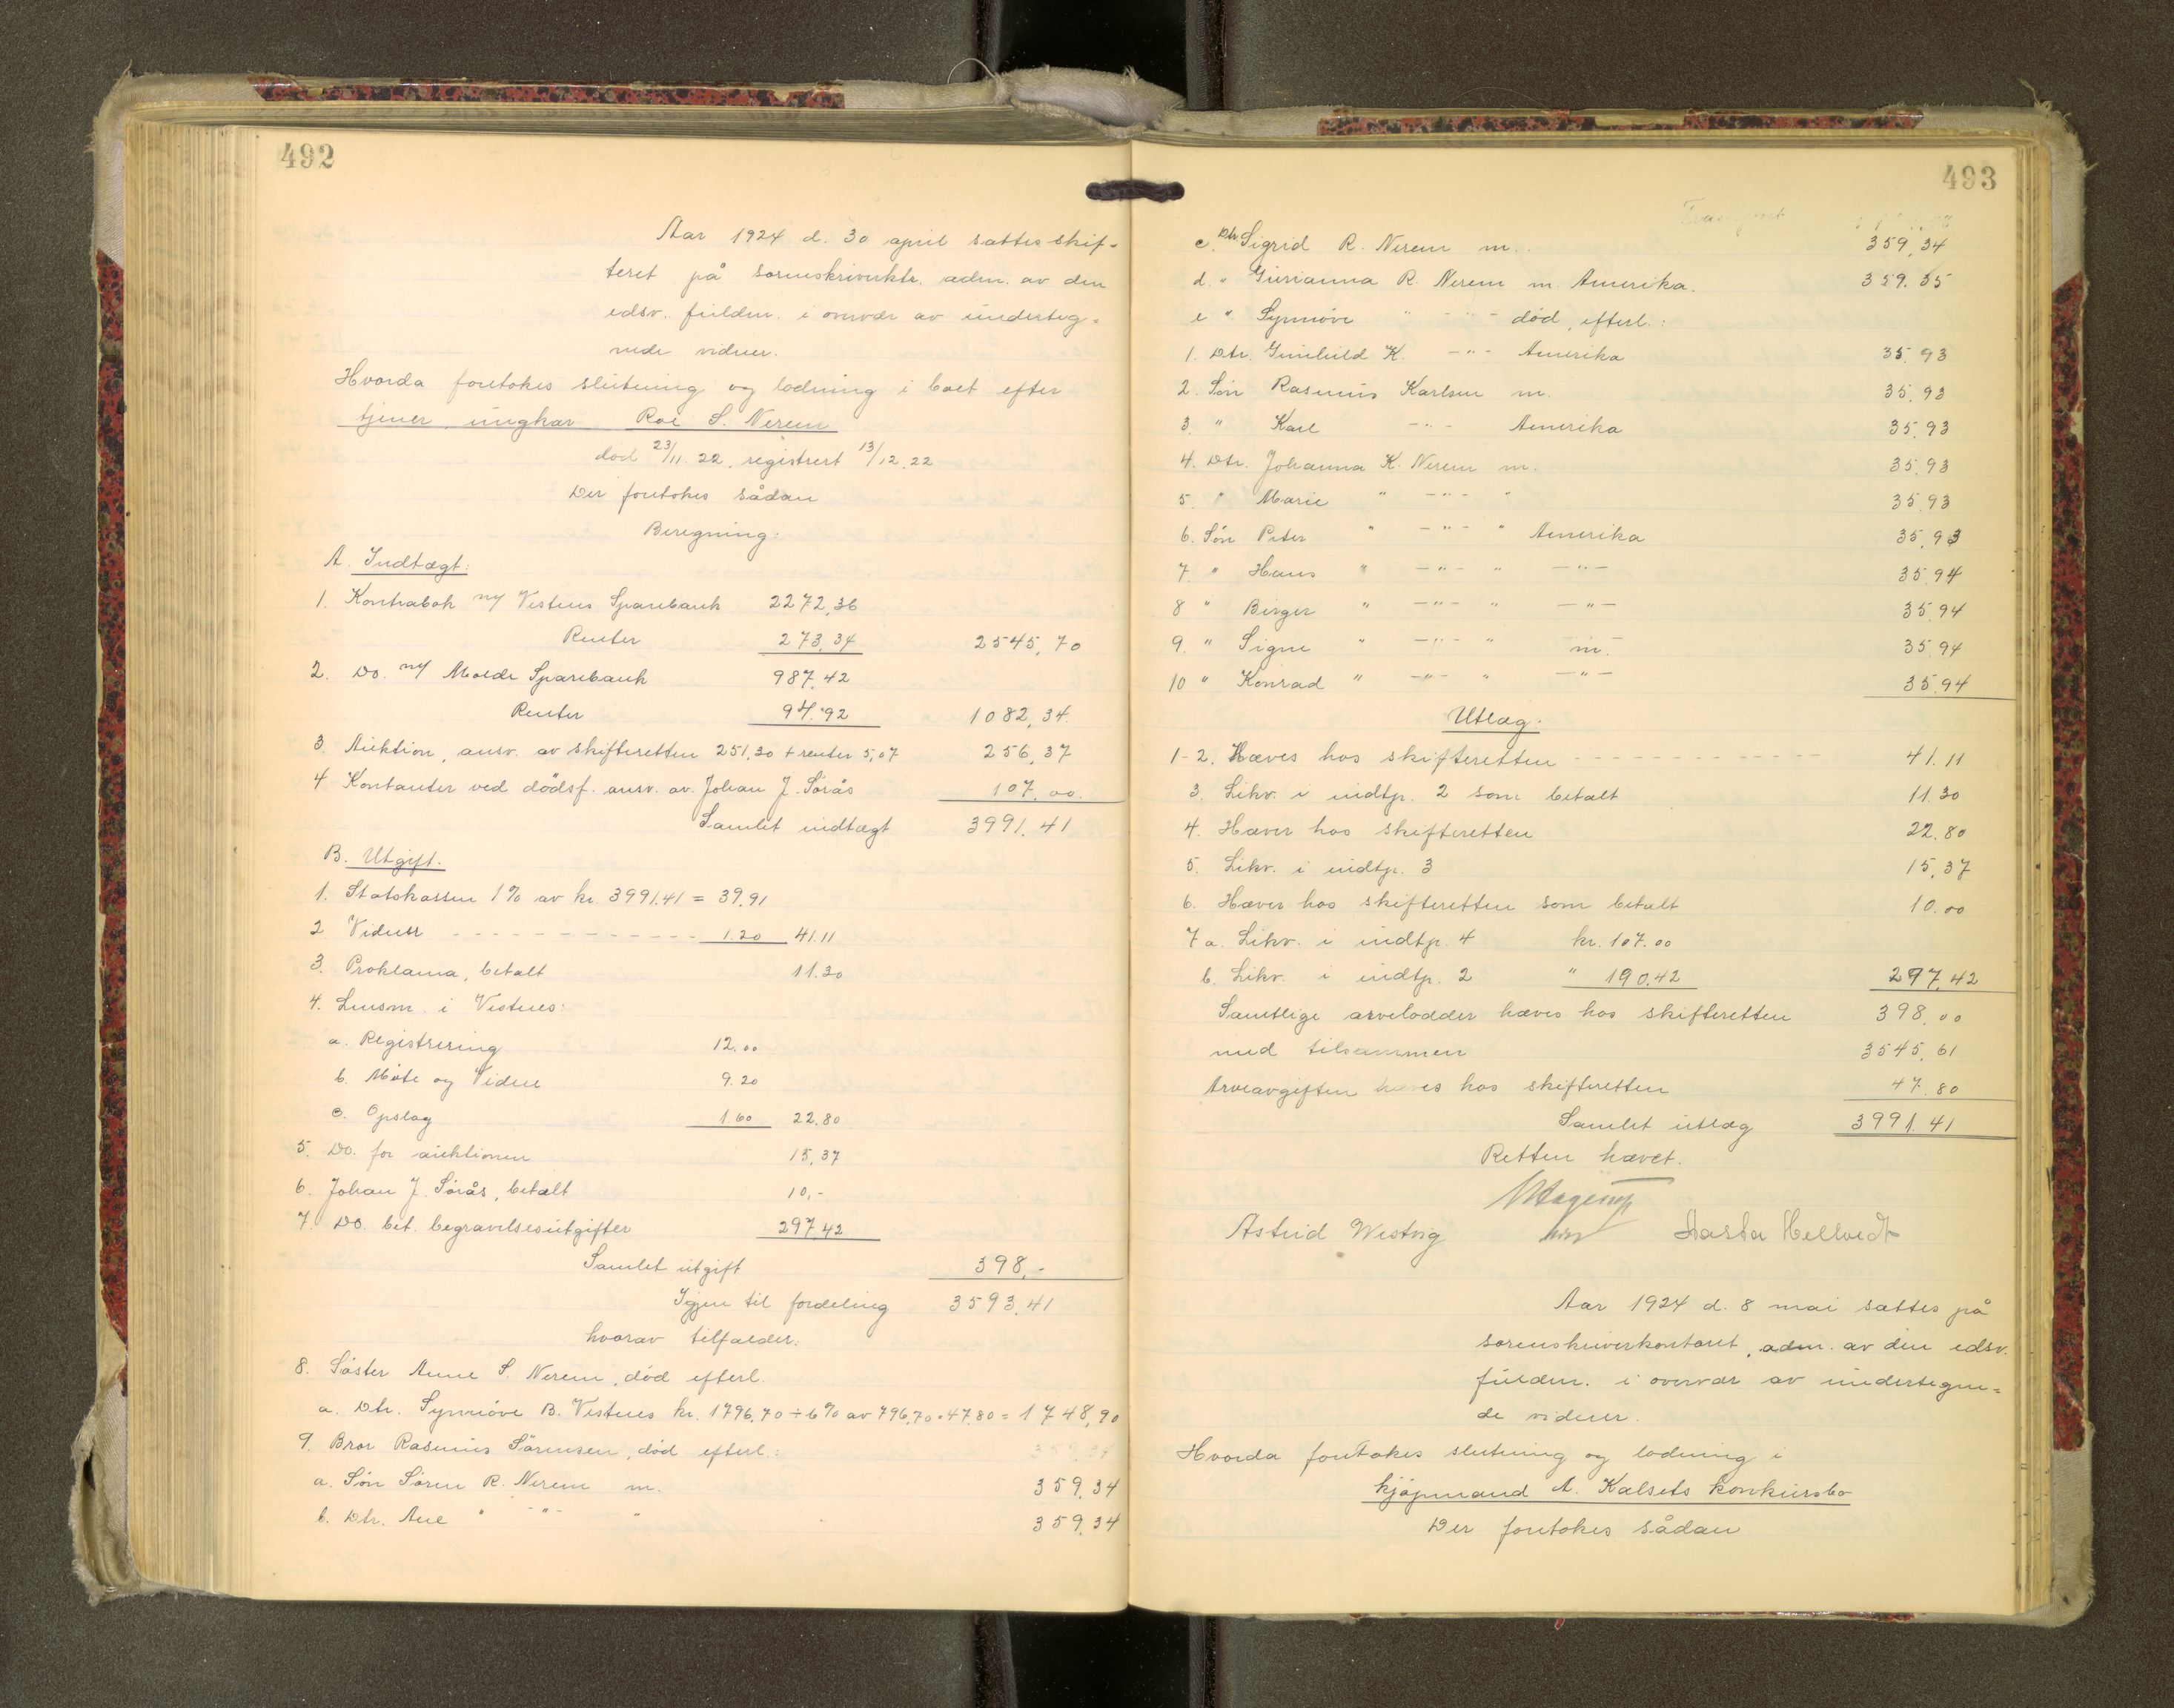 492
Aar 1924 d. 30 april sattes skif-
teret på sorenskriverktr. adm. av den
edsv. fuldm. i overvær av underteg-
nede vidner.
Hvorda foretokes slutning og lodning i boet efter
tjener, ungkar Roe S. Nerem
død 23/11 22, registrert 13/12.22
Der foretokes sådan
Beregning:
A. Indtægt:
1. Kontrabok n/ Vestnes Sparebank 2272,36
Renter 273,34 2545,70
2. Do. n/ Molde Sparebank 987.42
Renter 94.92 1082,34.
3. Auktion, ansv. av skifteretten 251,30 + renter 5,07 256,37
4 Kontanter ved dødsf. ansv. av Johan J. Sørås 107.00.
Samlet indtægt 3991.41
B. Utgift.
1. Statskassen 1% av kr. 3991.41 = 39.91
2 Vidner - - - - - - - - - - - - - 1.20 41.11
3. Proklama, betalt 11.30
4. Lensm. i Vestnes:
a. Registrering 12.00
b. Møte og Vidne 9.20
c. Opslag 1.60 22.80
5. Do. for auktionen 15,37
6. Johan J. Sørås, betalt 10,-
7. Do. bet. begravelsesutgifter 297,42
Samlet utgift 398,-
Igjen til fordeling 3593,41
hvorav tilfalder.
8. Søster Anne S. Nerem, død efterl.
a. Dtr. Synnøve B. Vestnes kr. 1796,70 ÷ 6% av 796,70 = 47.80 = 1748,90
9. Bror Rasmus Sørensen, død efterl.:
a. Søn Søren R. Nerem m. 359,34
b. Dtr. Ane " -"- " 359,34
493
Transport
c. Dtr Sigrid R. Nerem m. 359,34
d. " Gurianna R. Nerem m. Amerika. 359.35
e " Synnøve " -"- død, efterl.:
1. Dtr. Gunhild K. -"- Amerika 35.93
2. Søn Rasmus Karlsen m. 35.93
3. " Karl -"- Amerika 35.93
4. Dtr. Johanna K. Nerem m. 35.93
5. " Marie " -"- " 35.93
6. Søn Peter " -"- " Amerika 35.93
7. " Hans " -"- " -"- 35.94
8 " Birger " -"- " -"- 35.94
9. " Signe " -"- " m. 35.94
10 " Konrad " -"- " -"- 35.94
Utlæg.
1-2. Hæves hos skifteretten - - - - - - - - - - - - - 41.11
3. Likv. i indtp. 2 som betalt 11.30
4. Hæver hos skifteretten 22.80
5. Likv. i indtp. 3 15,37
6. Hæver hos skifteretten som betalt 10.00
7 a. Likv. i indtp. 4 kr. 107.00
b. Likv. i indtp. 2 " 190.42 297,42
Samtlige arvelodder hæves hos skifteretten 398,00
med tilsammen 3545,61
Arveavgiften hæves hos skifteretten 47.80
Samlet utlæg 3991.41
Retten hævet.
Astrid Westvig Hellvedt
Aar 1924 d. 8 mai sattes på
sorenskriverkontoret, adm. av den edsv.
fuldm. i overvær av undertegne-
de vidner.
Hvorda foretokes slutning og lodning i
kjøpmand A. Kalsets konkursbo
Der foretokes sådan